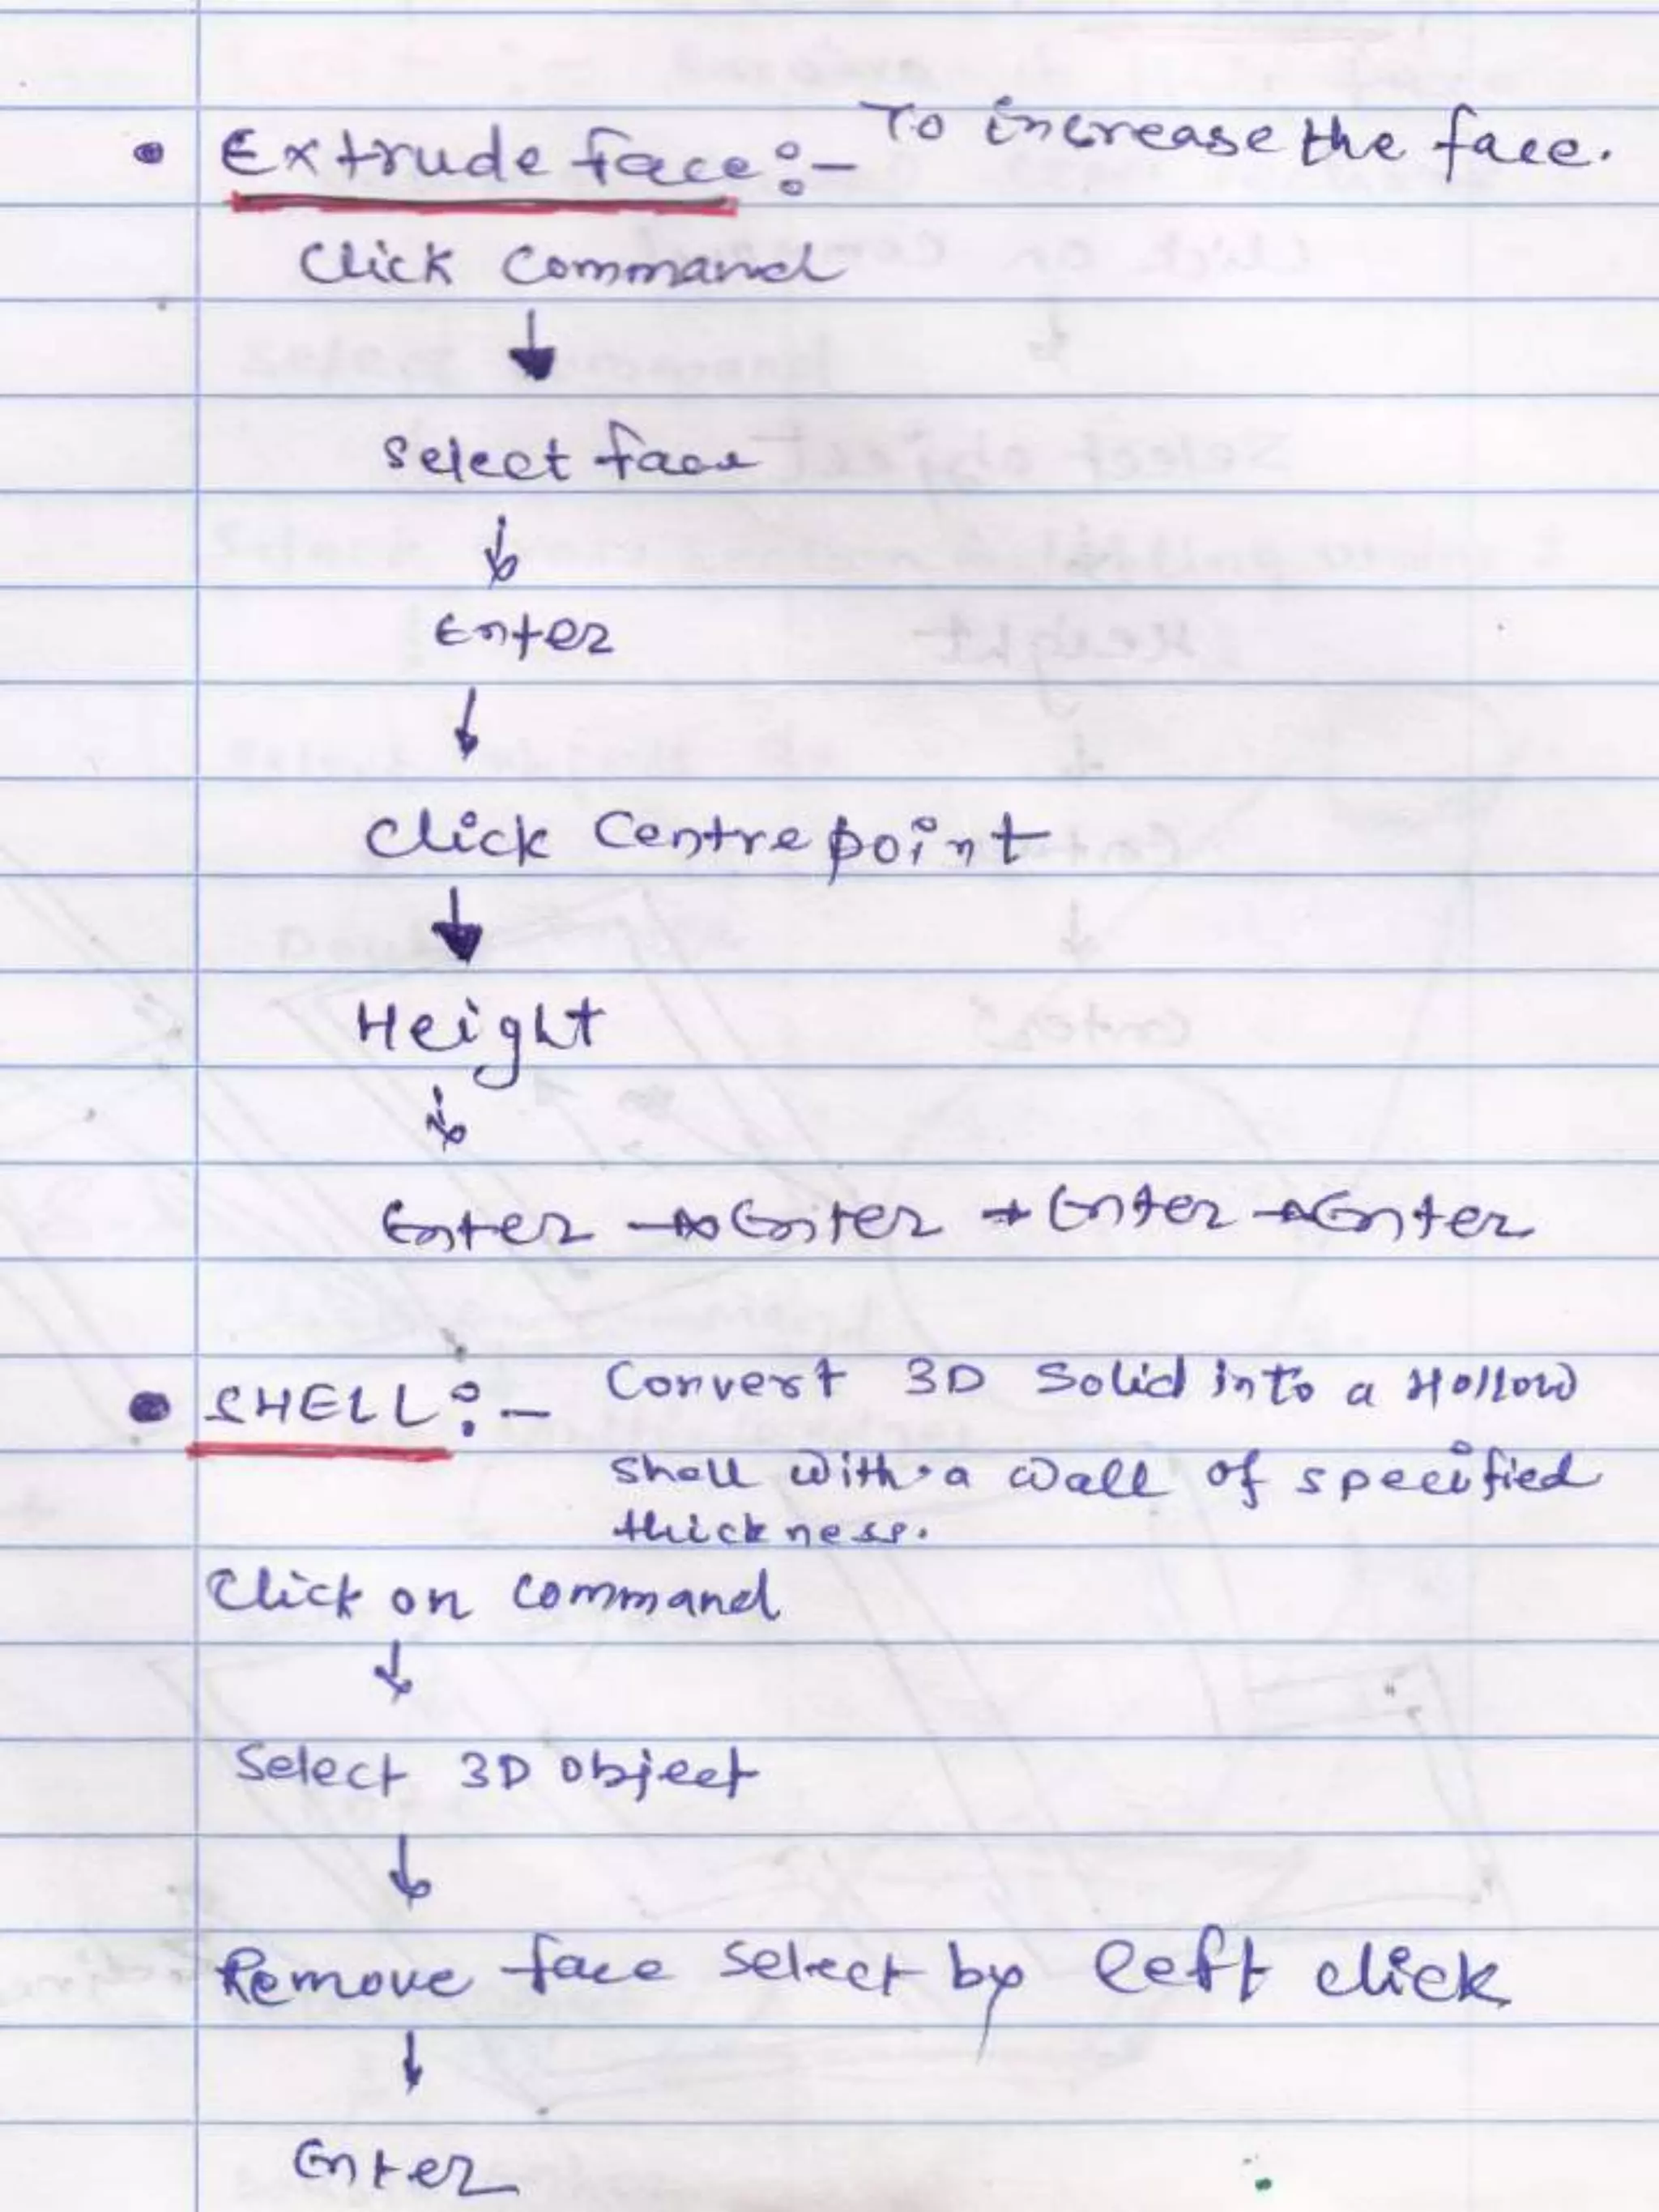 • Extrude face :- To increase the face.
Click Command
↓
Select face
↓
Enter
↓
Click Centre point
↓
Height
↓
Enter → Enter → Enter → Enter
• SHELL :- Convert 3D Solid into a Hollow
shell with a wall of specified
thickness.
Click on Command
↓
Select 3D Object
↓
Remove face select by left click
↓
Enter